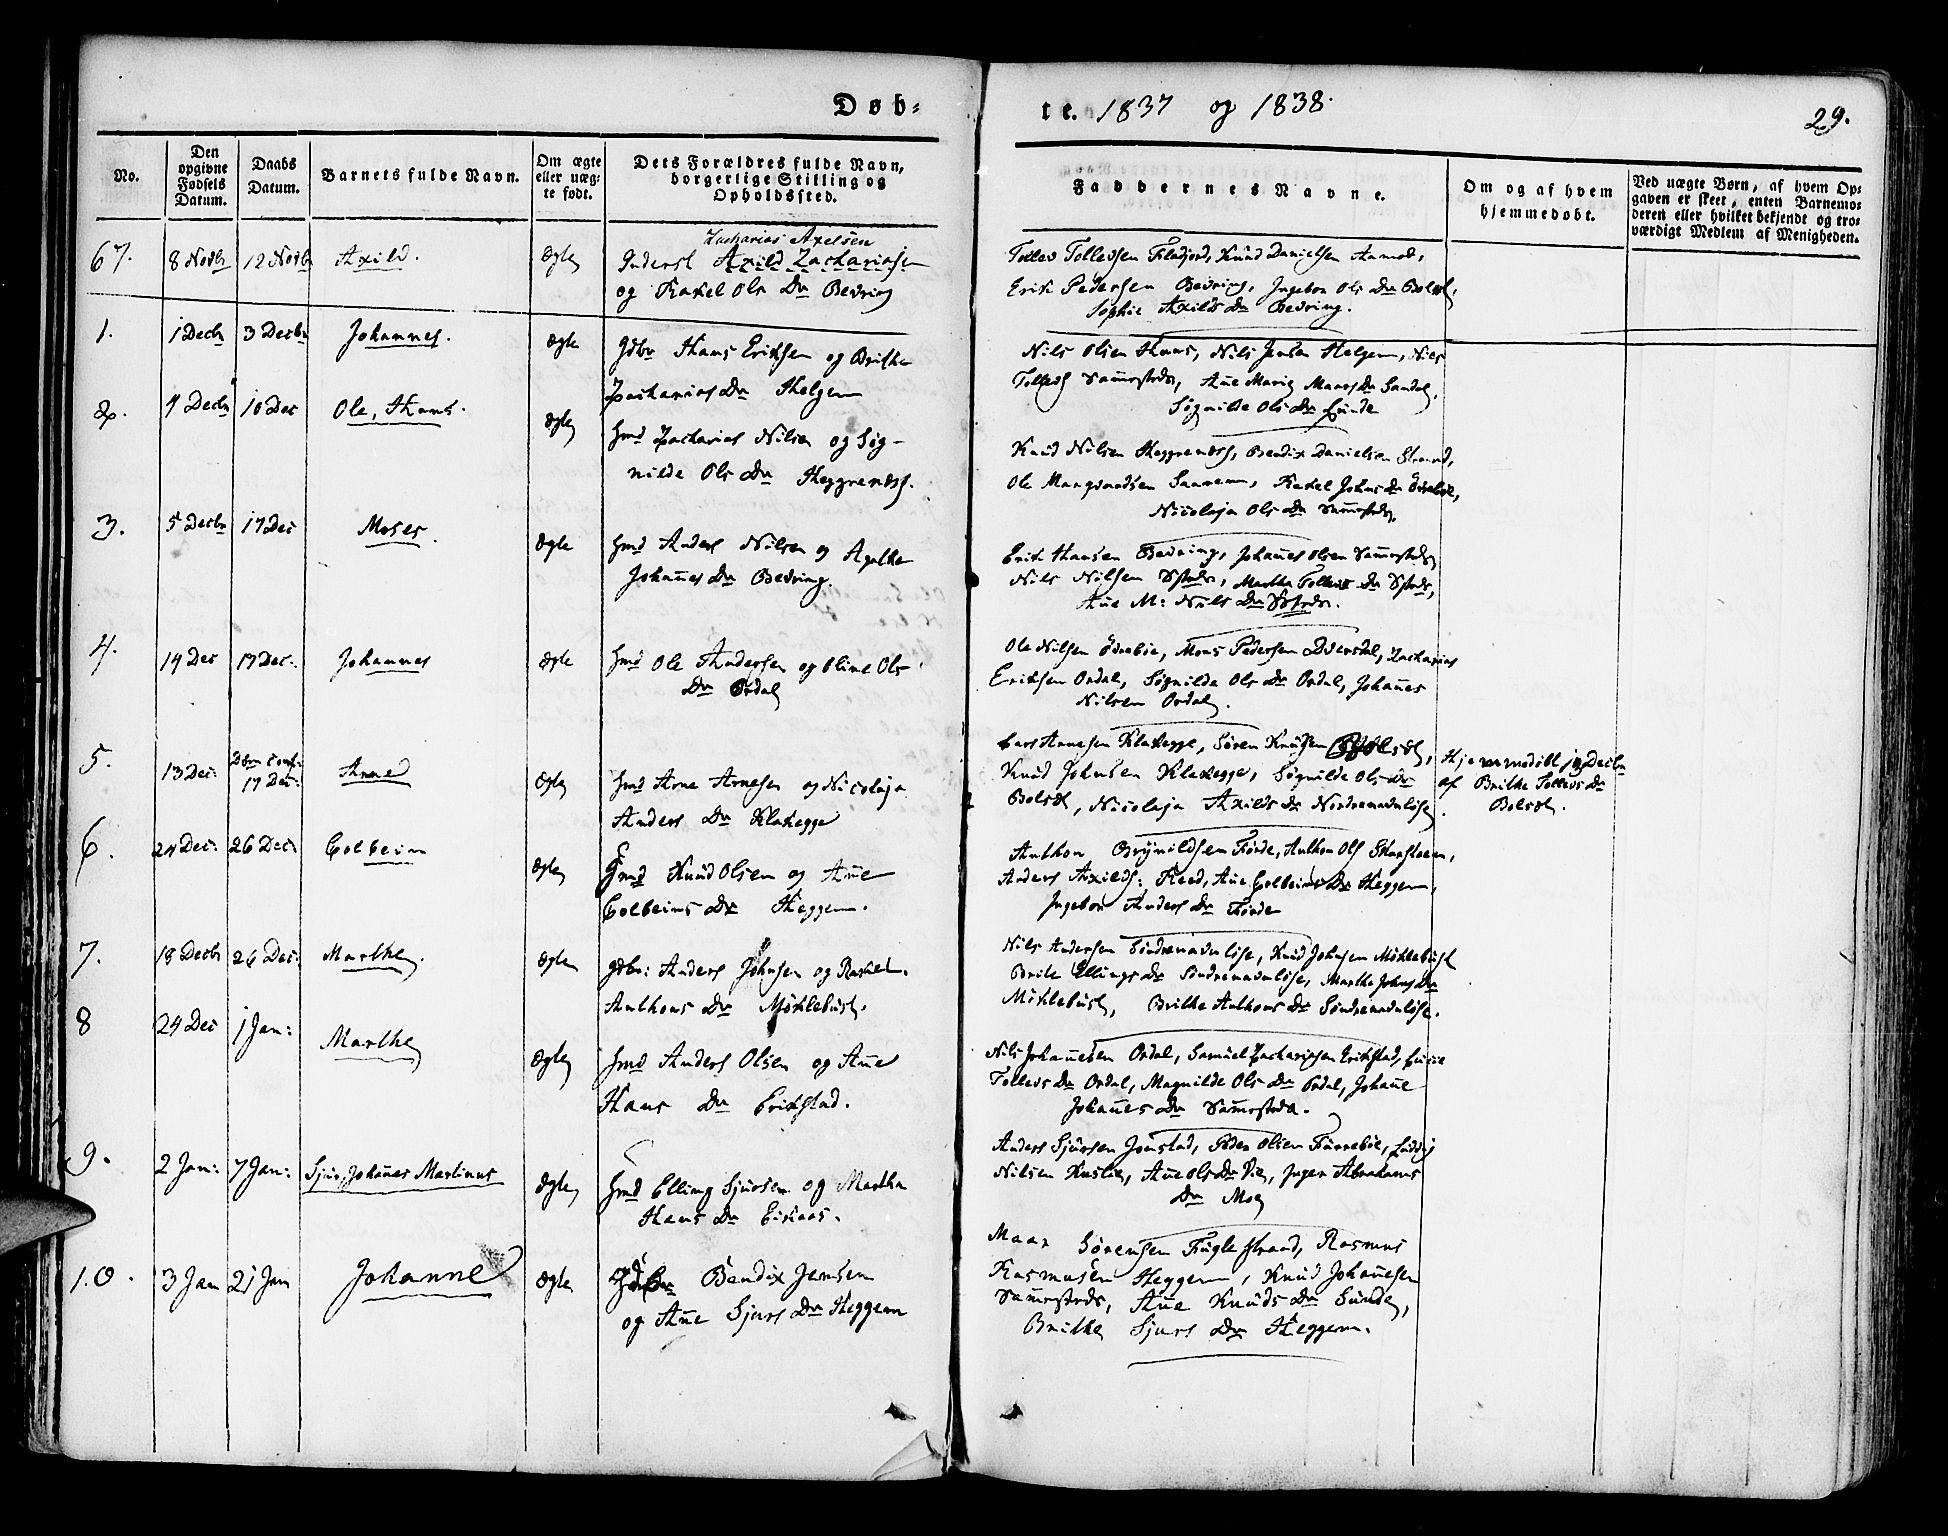 Døb=
te. 1837 og 1838.
29.
No.
Den opgivne Fødsels Datum.
Daabs Datum.
Barnets fulde Navn.
Om ægte eller uæg-te født.
Dets Forældres fulde Navn, borgerlige Stilling og Opholdssted.
Faddernes Navne.
Om og af hvem hjemmedøbt.
Ved uægte Børn, af hvem Op-gaven er skeet, enten Barnemo-deren eller hvilket bekjendt og tro-værdigt Medlem af Menigheden.
67. 8 Novbr 12 Novbr Axild. Ægte
Zacharias Axelsen
Inderst Axild Zachariasen
og Rakel Ols Dr Bedring
Tollev Tollevsen Fladjord, Knud Danielsen Aamot,
Erik Pedersen Bedring, Ingebor Ols Dr Bolset,
Sophie Axilds Dr Bedring.
1. 1 Decbr 3 Decbr Johannes. Ægte
Gdbr Hans Eriksen og Brithe
Zacharias Dr Helgem
Nils Olsen Haus, Nils Jensen Helgem, Nils
Tollevs Sammesteds, Ane Marie Maars Dr Sandal,
Søgnilde Ols Dr Sunde
2. 4 Decbr 10 Dec Ole, Hans. Ægte
Hmd Zacharias Nilsen og Søg-
nilde Ols Dr Heggrenæss.
Knud Nilsen Heggrenæss, Bendix Danielsen Strand,
Ole Mangsnadsen Saanem, Rakel Johns Dr Øvrebøe,
Nicolaja Ols Dr Sammesteds.
3. 5 Decbr 17 Dec Moses. Ægte
Hmd Anders Nilsen og Agathe
Johannes Dr Bedring.
Erik Hansen Bedring, Johannes Olsen Sammesteds
Nils Nilsen Ssteds, Martha Tollevs Dr Ssteds,
Ane M: Nils Dr Ssteds.
4. 14 Dec 17 Dec. Johannes Ægte
Hmd Ole Andersen og Oline Ols
Dr Ordal
Ole Nilsen Øvrebøe, Mons Pedersen Dvergsdal, Zacharias
Eriksen Ordal, Søgnilde Ols Dr Ordal, Johannes
Nilsen Ordal.
5. 13 Dec: Dbn conf: 17 Dec: Anne Ægte
Hmd Arne Arnesen og Nicolaja
Anders Dr Klakegge
Lars Arnesen Klakegge, Søren Knudsen Bolset,
Knud Johnsen Klakegge, Søgnilde Ols Dr
Bolset, Nicolaja Axilds Dr Nordrenavnløse.
Hjemmedøbt 13 Decbr
af Brithe Tollevs Dr
Bolset.
6. 24 Dec: 26 Dec: Colbein Ægte
Hmd Knud Olsen og Ane
Colbeins Dr Heggem.
Anthon Brynildsen Førde, Anthon Ols Skarstuen,
Anders Axilds: Reed, Ane Colbeins Dr Heggem,
Ingebor Anders Dr Førde
7. 18 Decbr 26 Dec: Marthe. Ægte
Gdbr: Anders Johnsen og Rachel
Anthons Dr Myklebust.
Nils Andersen Søndrenavnløse, Knud Johnsen Myklebust
Brite Ellings Dr Søndrenavnløse, Marthe Johns Dr
Myklebust, Brithe Anthons Dr Søndrenavnløse.
8 24 Dec 1 Jan: Marthe Ægte
Hmd Anders Olsen og Ane
Hans Dr Erikstad.
Nils Johannesen Ordal, Samuel Zachariasen Erikstad, Lucie
Tollevs Dr Ordal, Magnilde Ols Dr Ordal, Johane
Johannes Dr Sammesteds.
9. 2 Jan: 7 Jan: Sjur, Johannes Martinus Ægte
Hmd Elling Sjursen og Martha
Hans Dr Eikaas.
Anders Sjursen Jonstad, Peder Olsen Funnebøe, Ludvig
Nilsen Huslie, Ane Ols Dr Vie, Inger Abrahams
Dr Moe
10. 3 Jan 21 Jan Johanne Ægte
Gdbr Bendix Jensen
og Ane Sjurs Dr Heggem
Maar Sørensen Fuglestrand, Rasmus
Rasmusen Heggem, Knud Johannesen
Sammesteds, Ane Knuds Dr Sunde,
Brithe Sjurs Dr Heggem.